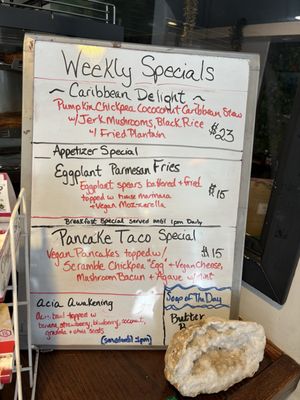 Weekly Specials
~ Caribbean Delight ~
Pumpkin Chickpea Cococonut Caribbean Stew
w/ Jerk Mushrooms, Black Rice
w/ Fried Plantain
$23
Appetizer Special
Eggplant Parmesan Fries
Eggplant spears battered + fried
topped w/ house marinara
+ Vegan Mozzarella
$15
Breakfast Special served until 1pm Daily
Pancake Taco Special
Vegan Pancakes topped w/
Scramble Chickpea "Egg" + Vegan Cheese,
Mushroom Bacun + Agave w/ mint
$15
Acia Awakening
Acai bowl topped w/
banana, strawberry, blueberry, coconut,
granola + chia seeds
(served until 1pm)
Soup of The Day
Butter